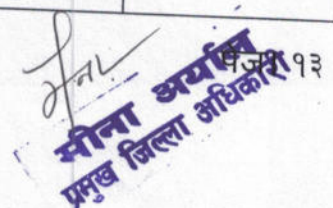 मैना
पेज १३
मीना अर्याल
प्रमुख जिल्ला अधिकारी